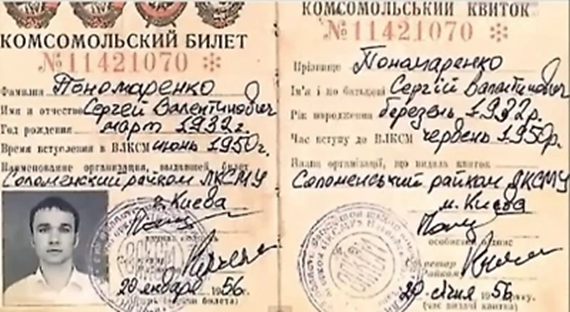 КОМСОМОЛЬСКИЙ БИЛЕТ
№ 11421070
Фамилия Пономаренко
Имя и отчество Сергей Валентинович
Год рождения март 1932 г.
Время вступления в ВЛКСМ июнь 1950 г.
Наименование организации, выдавшей билет
Соломенский райком ЛКСМУ
г. Киева
20 января 1956
КОМСОМОЛЬСЬКИЙ КВИТОК
№ 11421070
Прізвище Пономаренко
Ім'я і по батькові Сергій Валентинович
Рік народження березень 1932 р.
Час вступу до ВЛКСМ червень 1950 р.
Назва організації, що видала квиток
Соломенський райком ЛКСМУ
м. Києва
особистий підпис
20 січня 1956 року
(час видачі квитка)